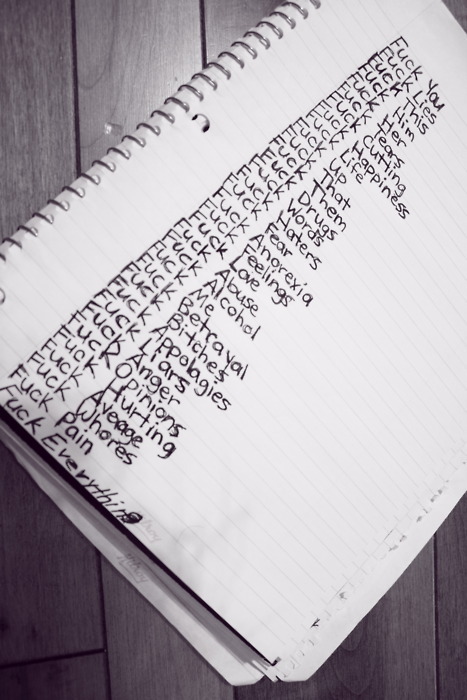 Fuck You
Fuck Lies
Fuck
Fuck
Fuck
Fuck Happiness
Fuck Life
Fuck
Fuck
Fuck Drugs
Fuck Words
Fuck Haters
Fuck Fear
Fuck Anorexia
Fuck Feelings
Fuck Love
Fuck Abuse
Fuck Alcohol
Fuck Me
Fuck Betrayal
Fuck Bitches
Fuck Appologies
Fuck Liars
Fuck Anger
Fuck Opinions
Fuck Hurting
Fuck Aveage
Fuck Whores
Fuck Pain
Fuck Everything